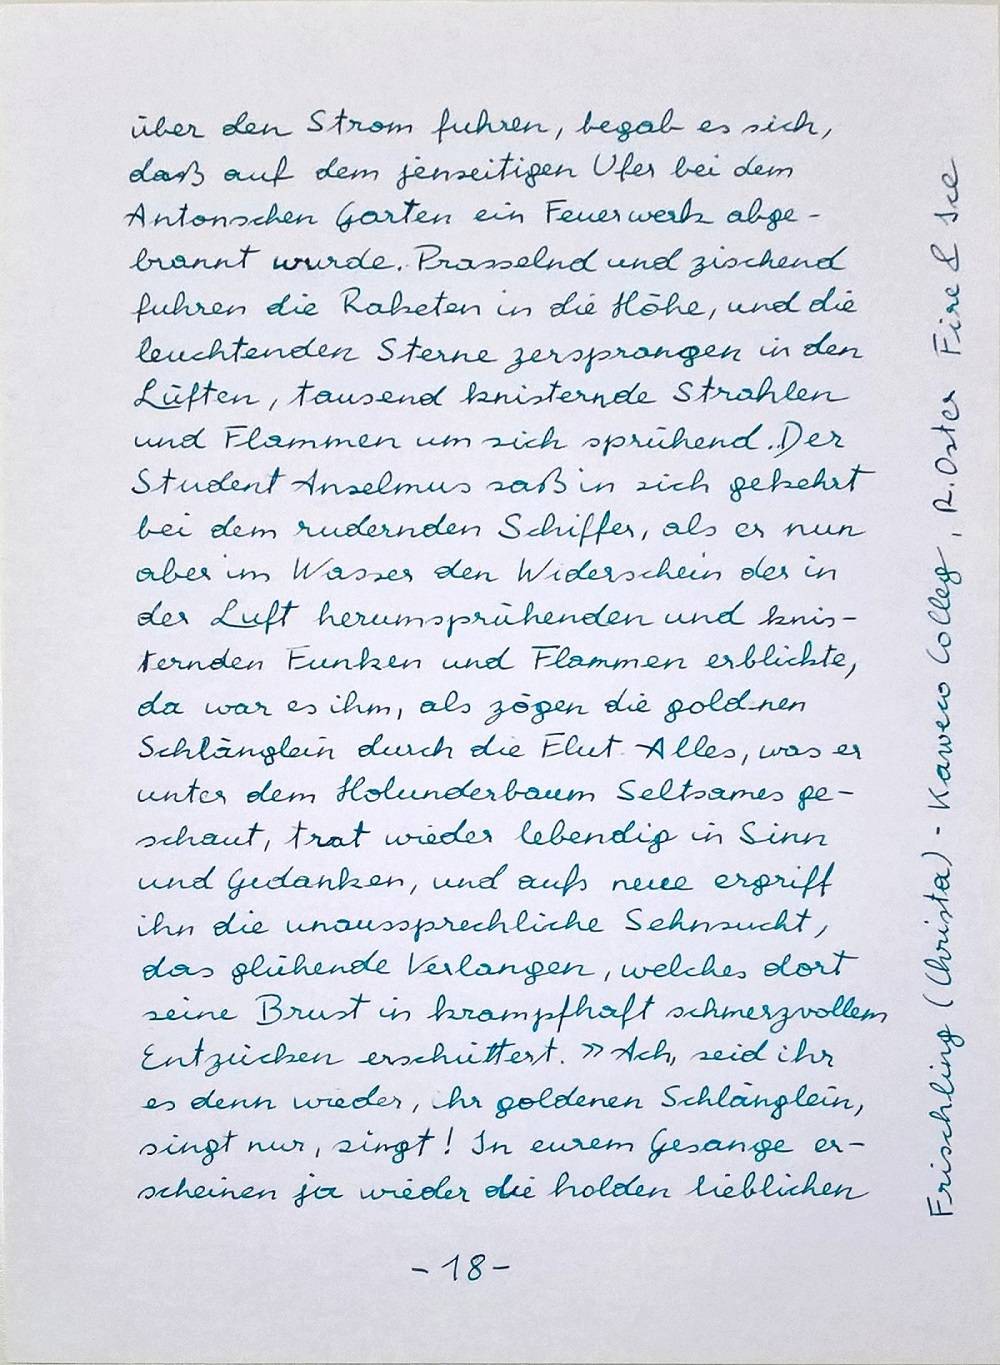 über den Strom fuhren, begab es sich,
daß auf dem jenseitigen Ufer bei dem
Antonschen Garten ein Feuerwerk abge-
brannt wurde. Prasselnd und zischend
fuhren die Raketen in die Höhe, und die
leuchtenden Sterne zersprangen in den
Lüften, tausend knisternde Strahlen
und Flammen um sich sprühend. Der
Student Anselmus saß in sich gekehrt
bei dem rudernden Schiffer, als er nun
aber im Wasser den Widerschein der in
der Luft herumsprühenden und knis-
ternden Funken und Flammen erblickte,
da war es ihm, als zögen die goldnen
Schlänglein durch die Flut. Alles, was er
unter dem Holunderbaum Seltsames ge-
schaut, trat wieder lebendig in Sinn
und Gedanken, und aufs neue ergriff
ihn die unaussprechliche Sehnsucht,
das glühende Verlangen, welches dort
seine Brust in krampfhaft schmerzvollem
Entzücken erschüttert. »Ach, seid ihr
es denn wieder, ihr goldenen Schlänglein,
singt nur, singt! In eurem Gesange er-
scheinen ja wieder die holden lieblichen
-18-
Frischling (Christa) - Kaweco Colleg, R. Oster Fire & Ice